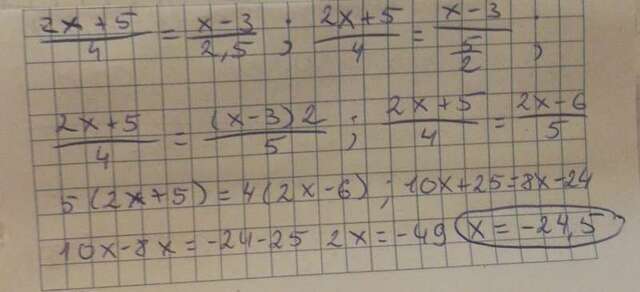 (2x+5)/4 = (x-3)/2,5 ; (2x+5)/4 = (x-3)/(5/2) ;
(2x+5)/4 = ((x-3)2)/5 ; (2x+5)/4 = (2x-6)/5
5(2x+5)=4(2x-6) ; 10x+25=8x-24
10x-8x=-24-25 2x=-49 x=-24,5